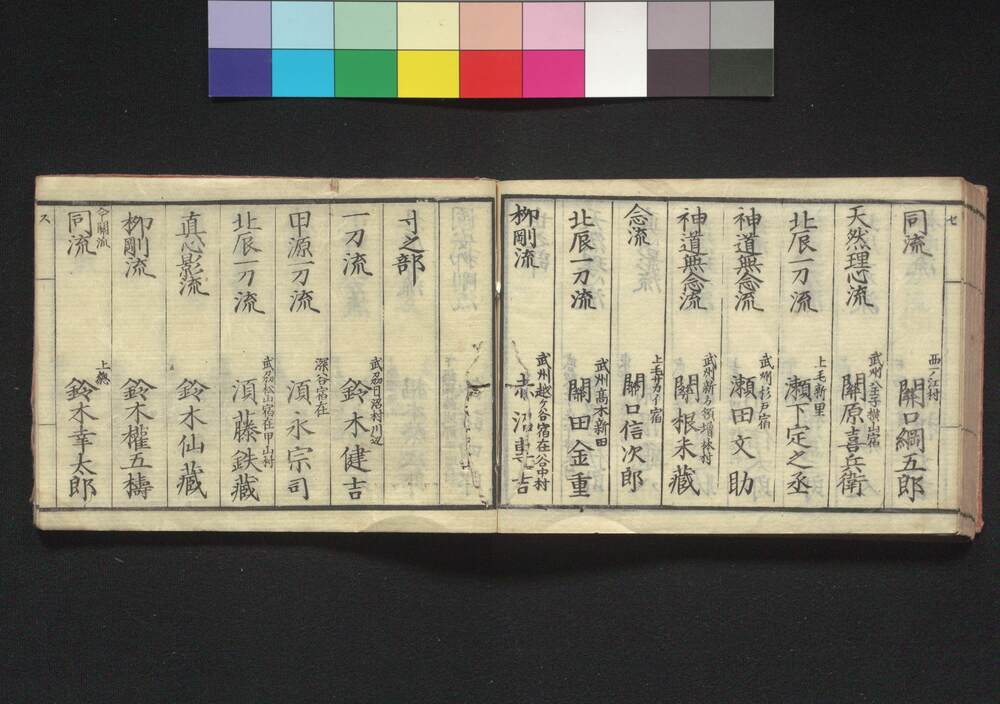 セ
同流 西ノ江村 關口綱五郎
天然理心流 武州八王子横山宿 關原喜兵衛
北辰一刀流 上毛新里 瀬下定之丞
神道無念流 武州杉戸宿 瀬田文助
神道無念流 武州新方領増林村 關根米藏
念流 宿 關口信次郎
北辰一刀流 武州髙木新田 關田金重
柳剛流 武州越ヶ谷宿在谷中村 吉
寸之部
一刀流 武州目沼村川辺 鈴木健吉
甲源一刀流 深谷宿在 須永宗司
北辰一刀流 武州松山宿在甲山村 須藤鉄藏
真心影流 鈴木仙藏
柳剛流 鈴木權五擣
同流 今關流 上總 鈴木幸太郎
ス